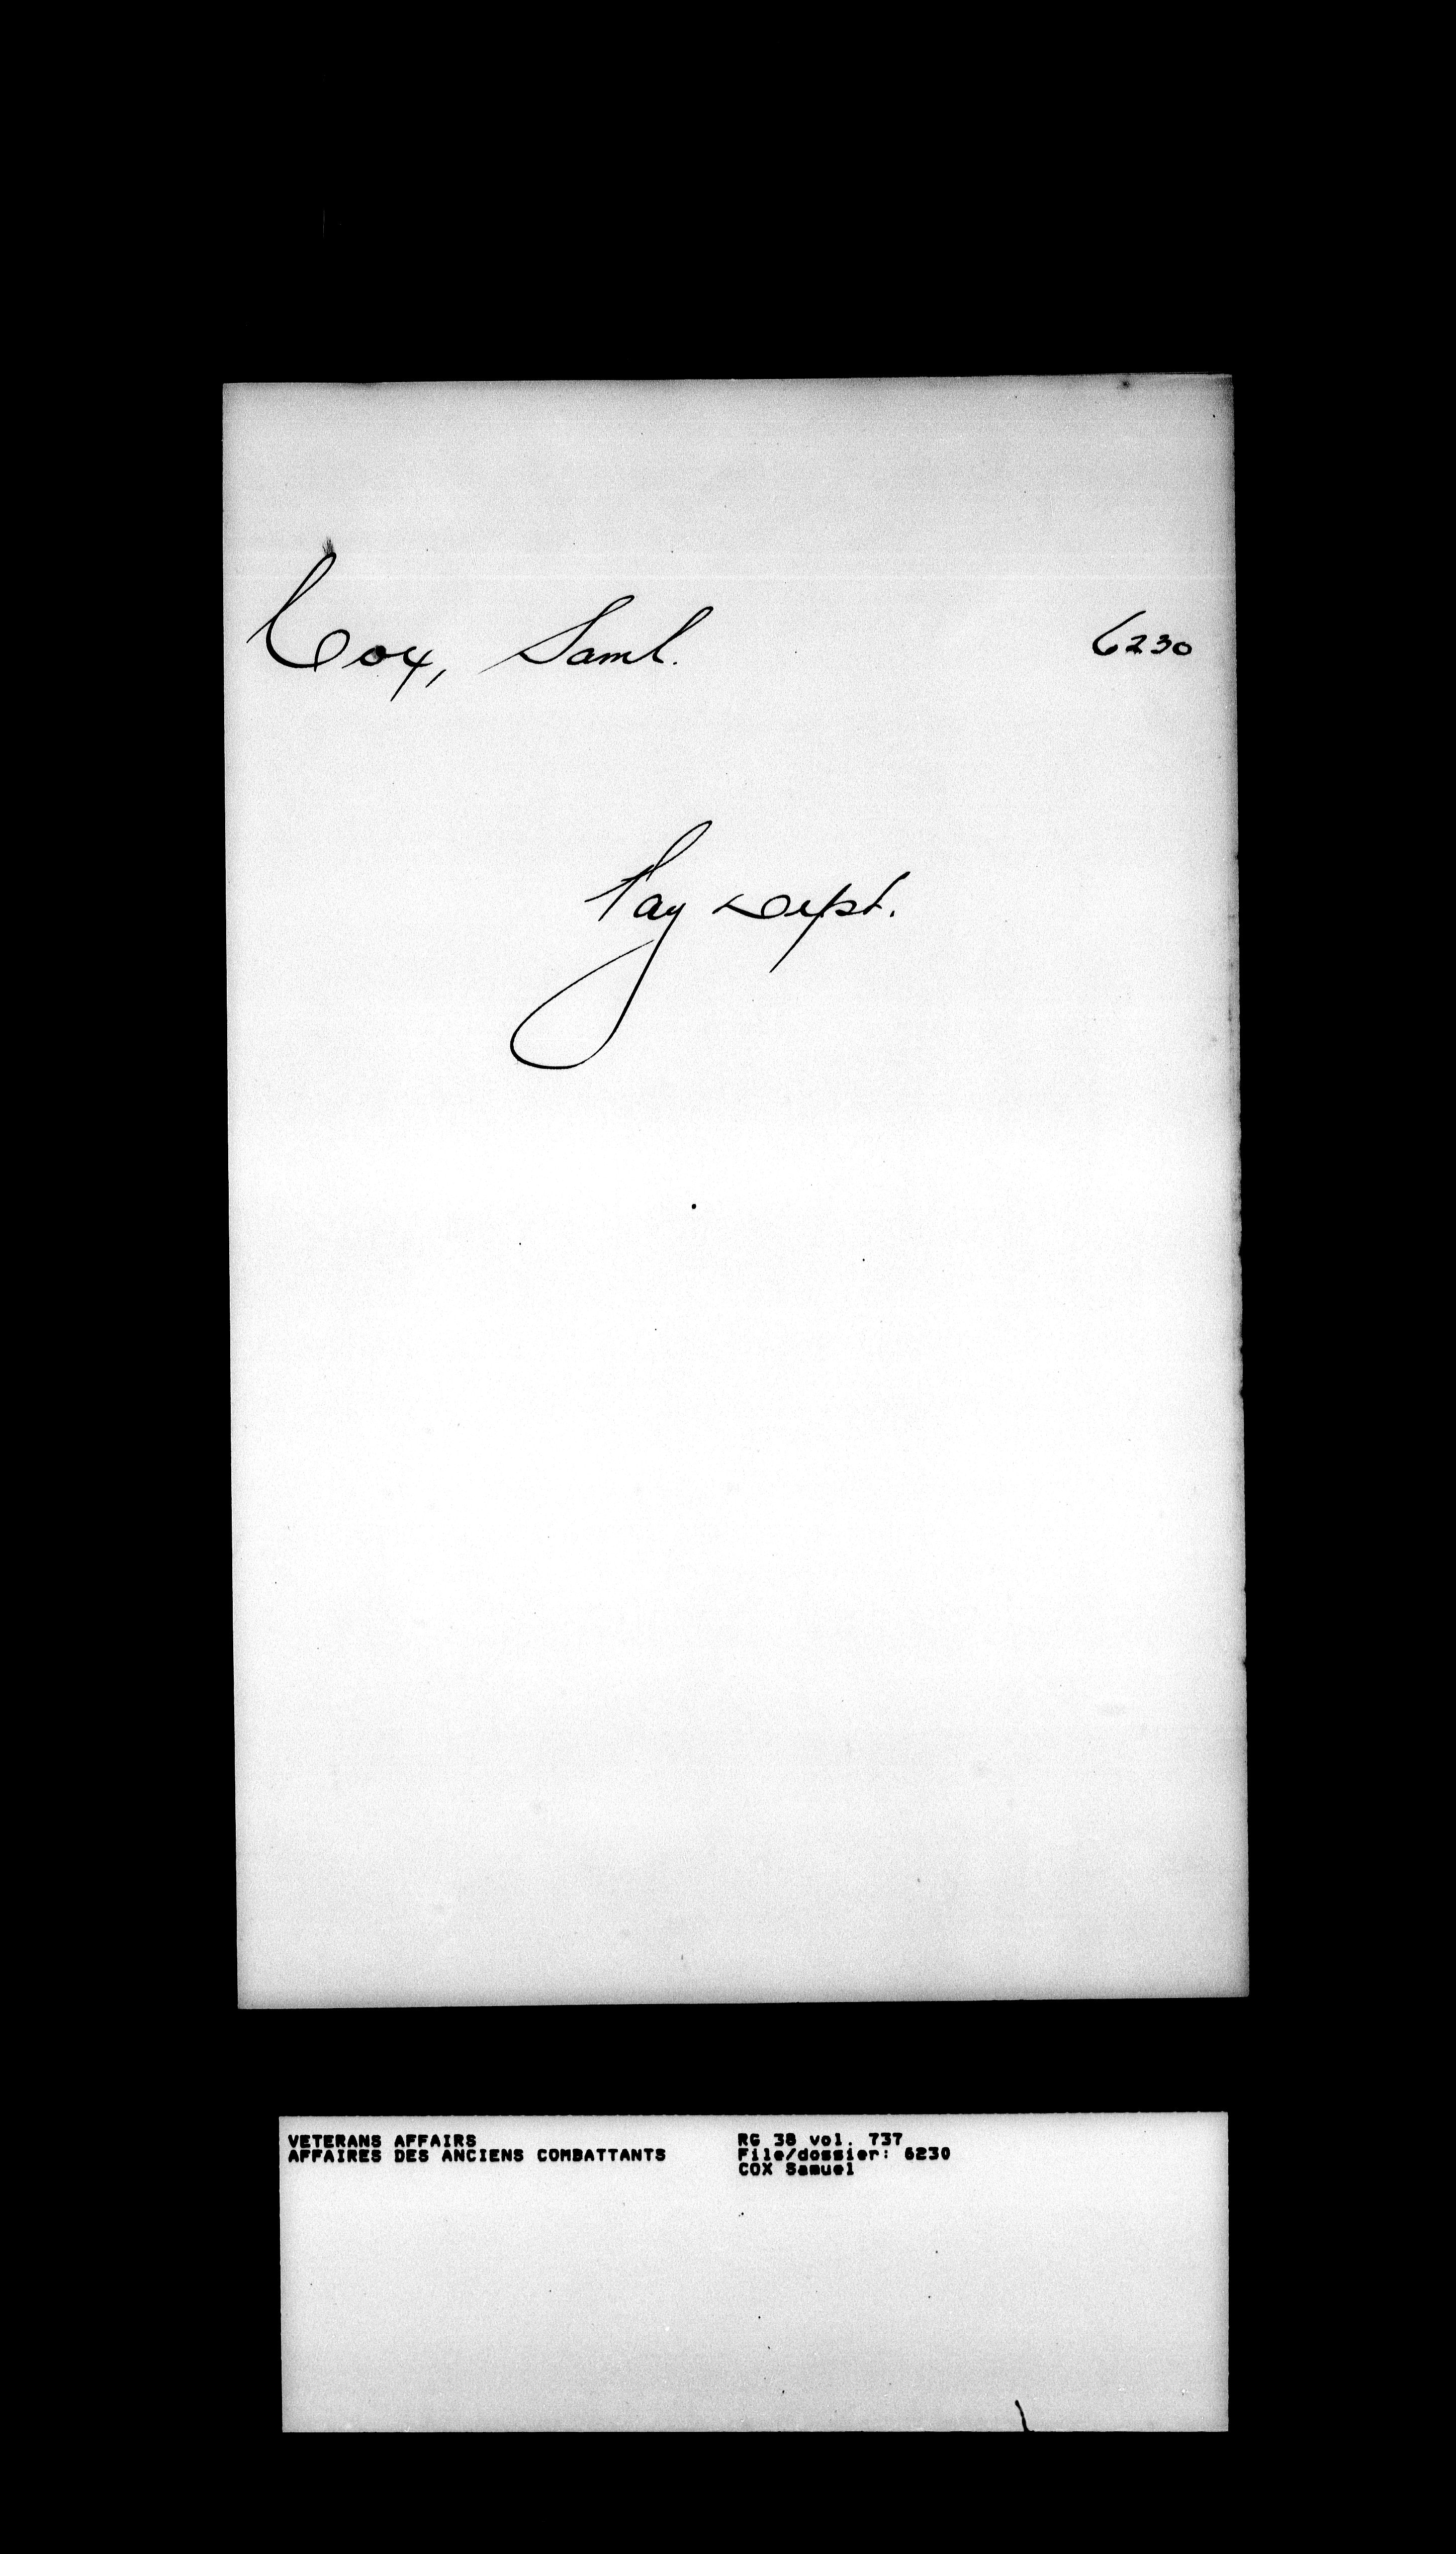 Cox, Saml. 6230
Pay Dept.
VETERANS AFFAIRS
AFFAIRES DES ANCIENS COMBATTANTS
RG 38 vol. 737
File/dossier: 6230
COX Samuel